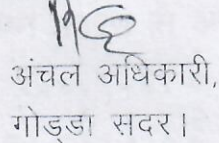 अंचल अधिकारी,
गोड्डा सदर।